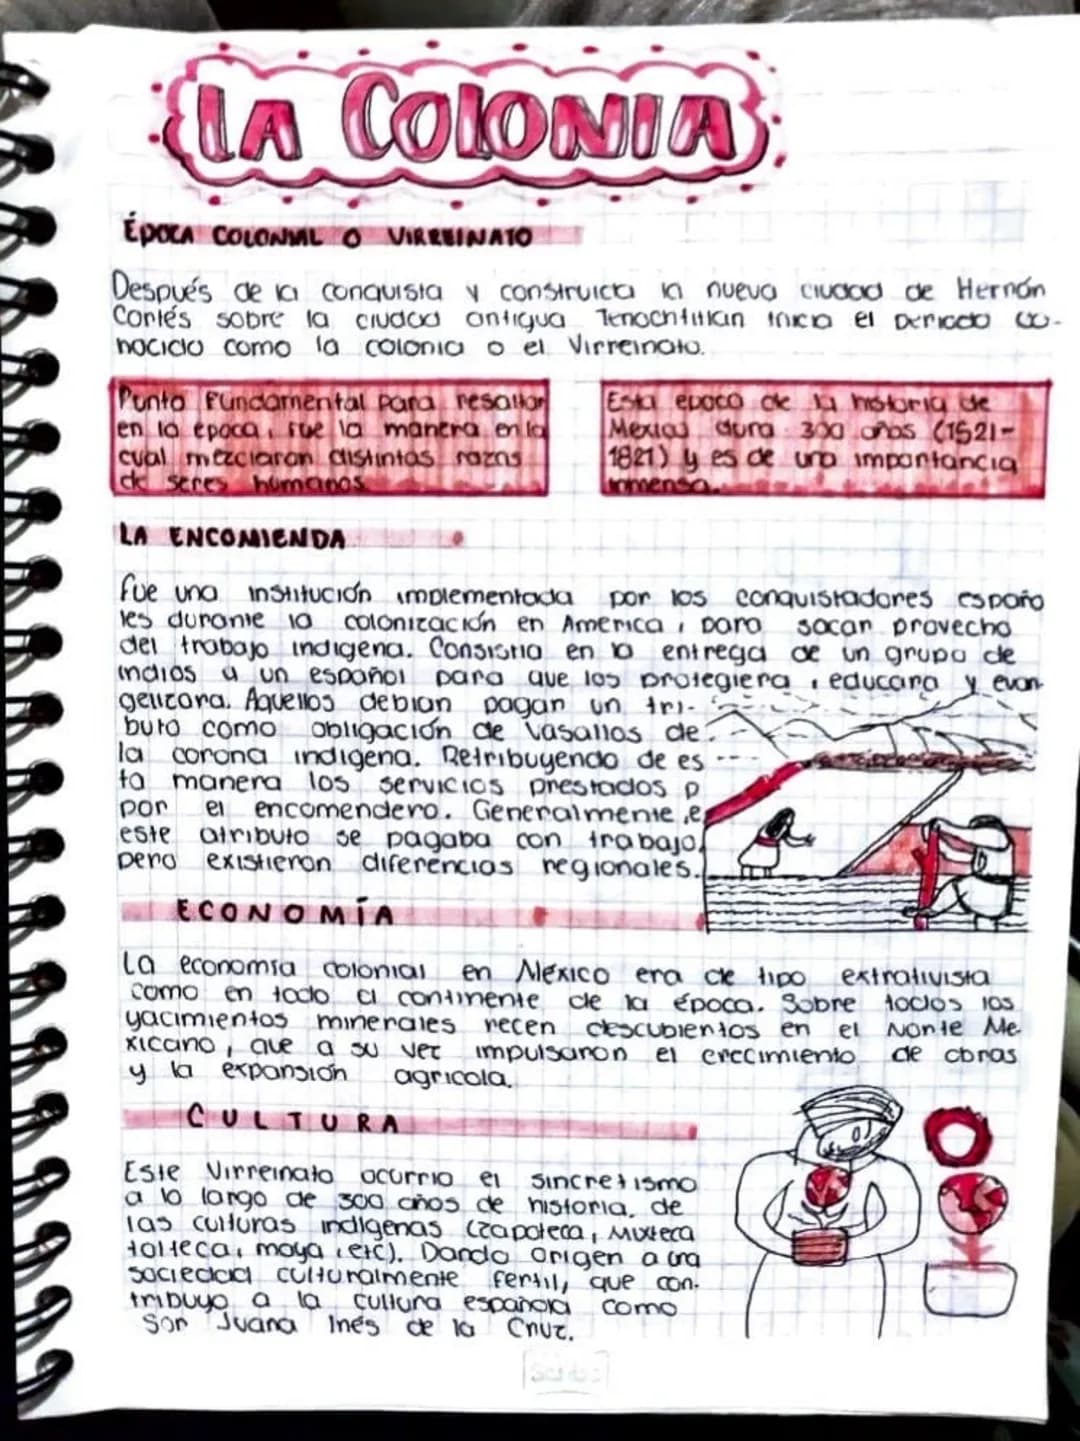 LA COLONIA
ÉPOCA COLONIAL O VIRREINATO
Después de la conquista y construida la nueva ciudad de Hernán
Cortés sobre la ciudad antigua Tenochtitlan inicia el periodo co-
nocido como la colonia o el Virreinato.
Punto Fundamental para resaltar
en la época, fue la manera en la
cual mezclaron distintas razas
de seres humanos.
Esta epoca de la historia de
Mexico dura 300 años (1521-
1821) y es de una importancia
inmensa.
LA ENCOMIENDA
Fue una institución implementada por los conquistadores españo
les durante la colonización en America, para sacar provecho
del trabajo indigena. Consistia en la entrega de un grupo de
indios a un español para que los protegiera, educara y evan-
gelizara. Aquellos debian pagar un tri-
buto como obligación de vasallos de
la corona indigena. Retribuyendo de es
ta manera los servicios prestados p
por el encomendero. Generalmente, e
este atributo se pagaba con trabajo,
pero existieron diferencias regionales.
ECONOMÍA
La economía colonial en México era de tipo extrativista
como en todo el continente de la época. Sobre todos los
yacimientos minerales recen descubientos en el Norte Me
xicano, que a su vez impulsaron el crecimiento de obras
y la expansión agricola.
CULTURA
Este Virreinato ocurrio el sincretismo
a lo largo de 300 años de historia, de
las culturas indigenas (zapoteca, Mixteca
tolteca, maya, etc). Dando origen a una
sociedad culturalmente fertil, que con-
tribuyo a la cultura española como
Sor Juana Inés de la Cruz.